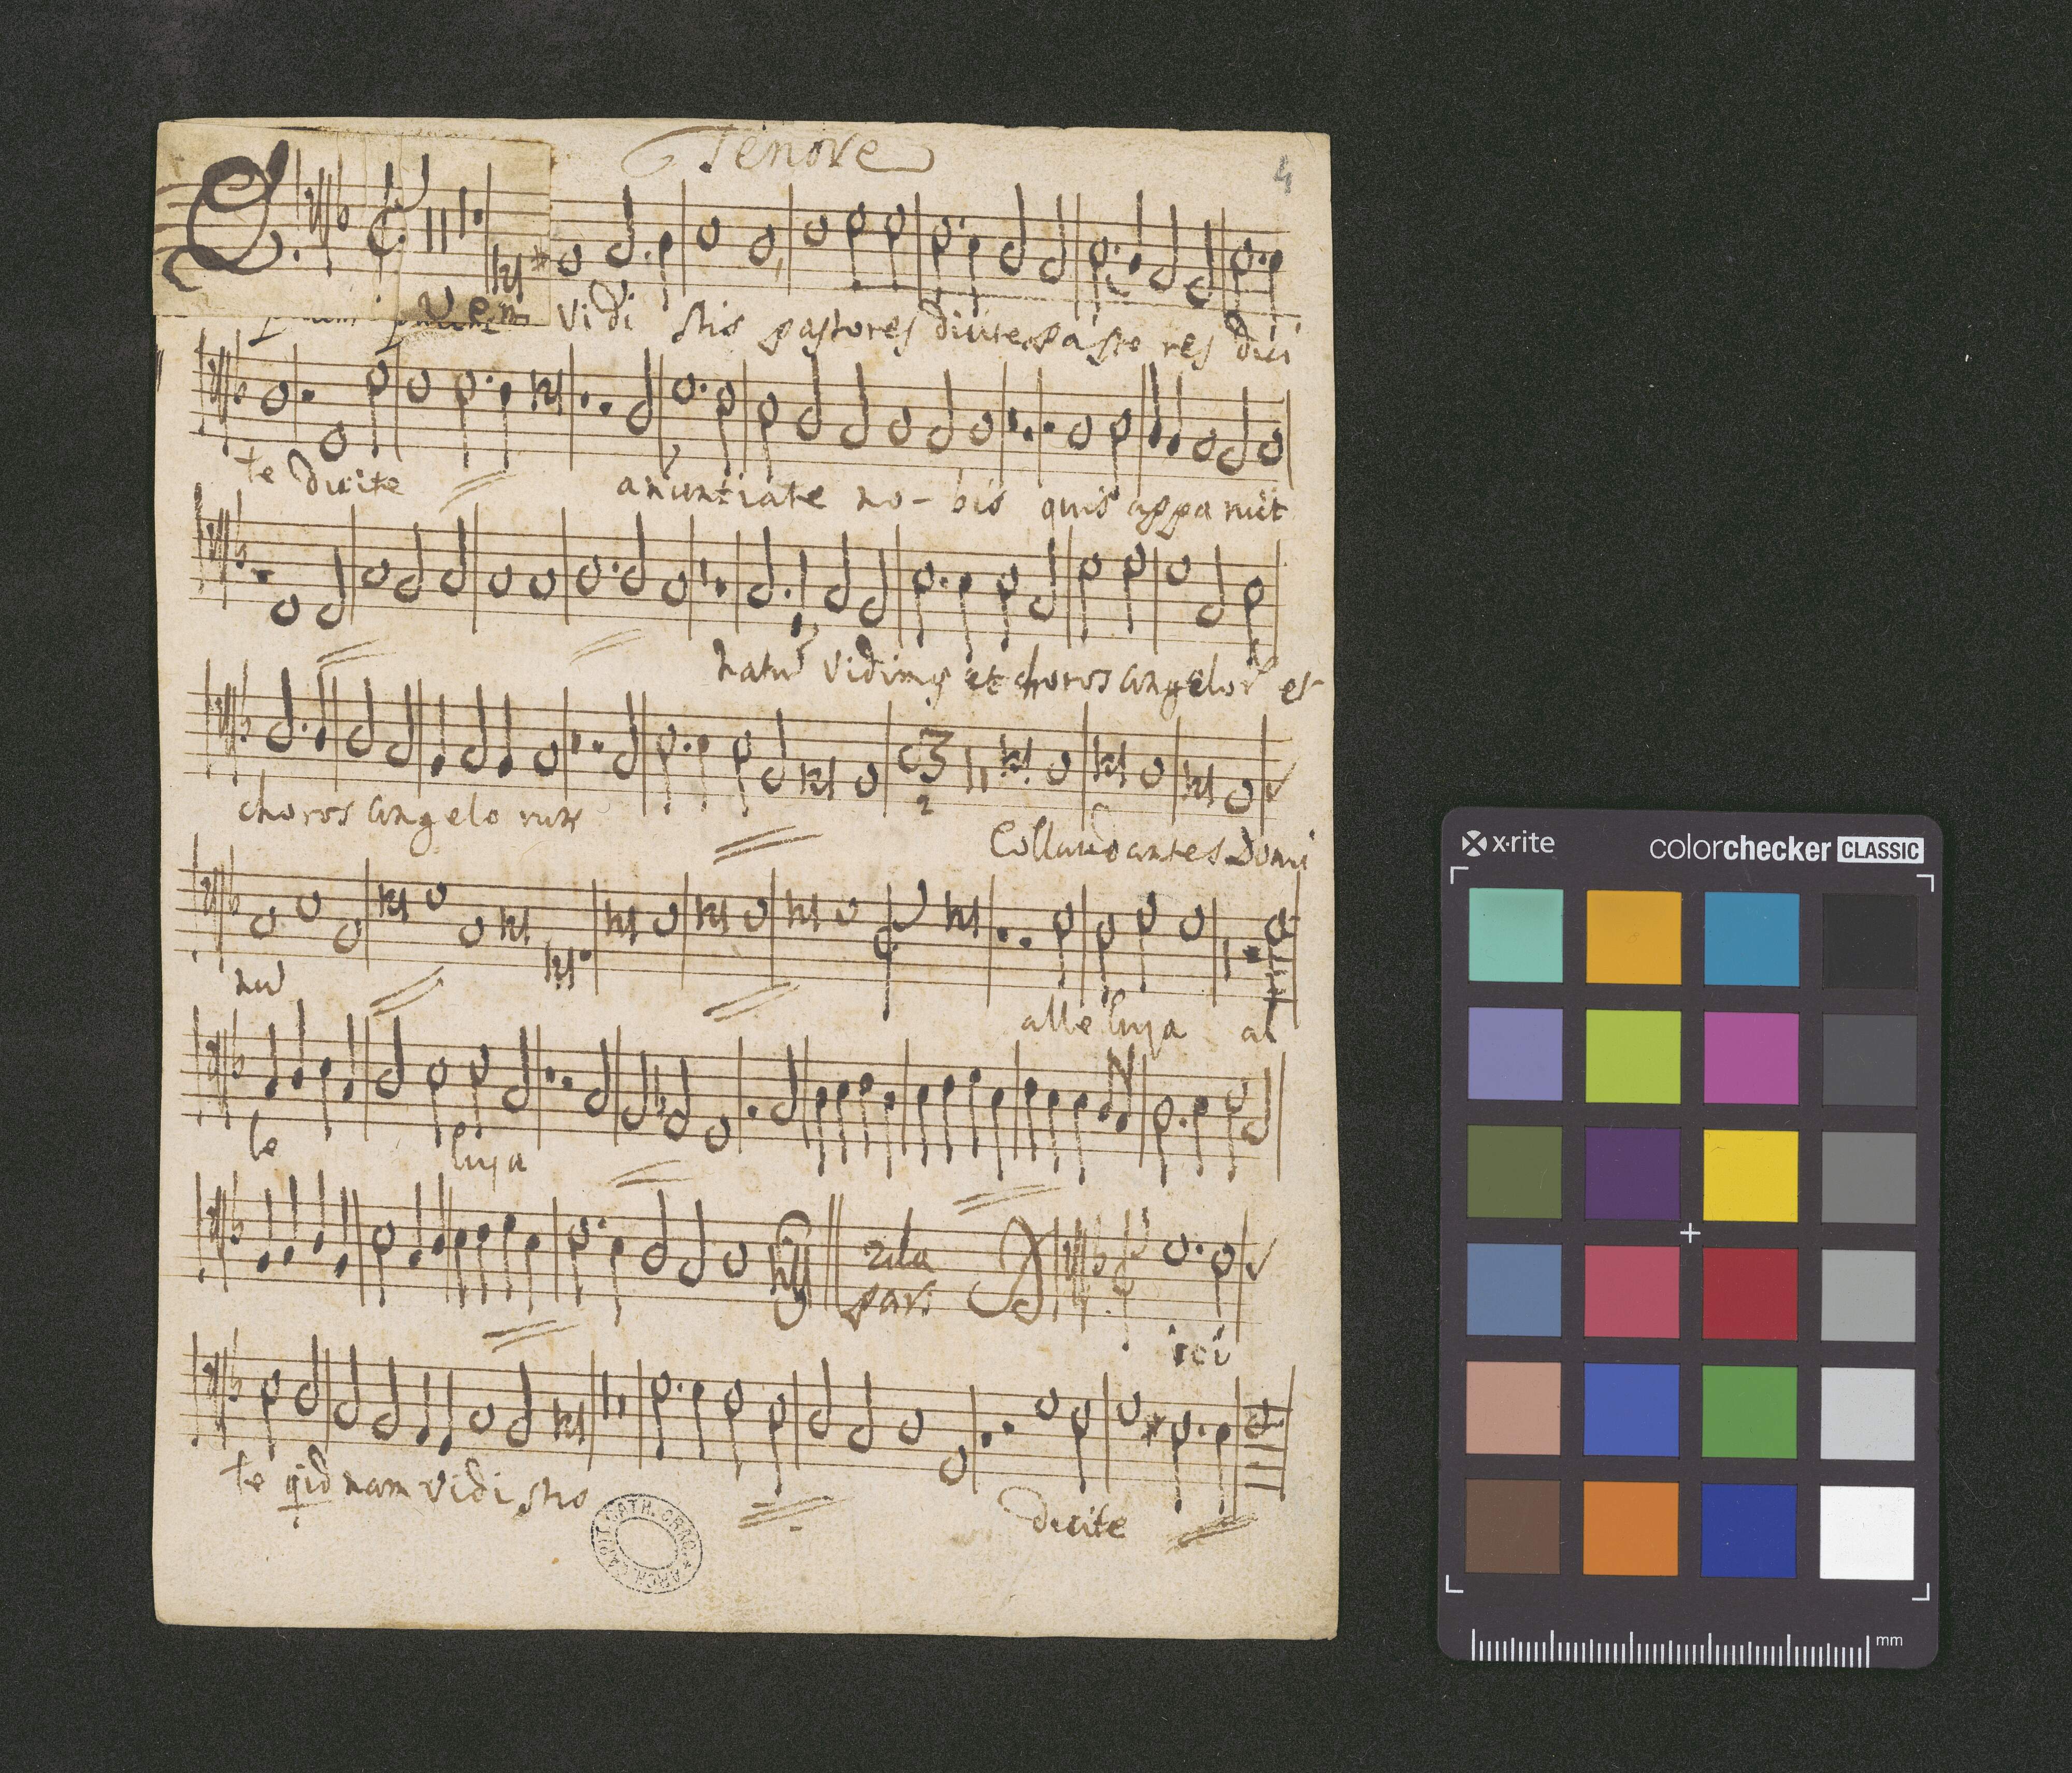 Tenore
4
Quem vidi stis pastores dicite pasto res dici
te dicite anuntiate no - bis quis appa ruit
natu vidimus et choros angelor et
choros angelo rum
3
2
Collaudantes Domi
nu
alleluja al
le luja
2da
pars
D ici
te qid nam vidi stis
dicite
ARCH. CAPIT. CATH. CRAC.
x·rite
colorchecker CLASSIC
mm